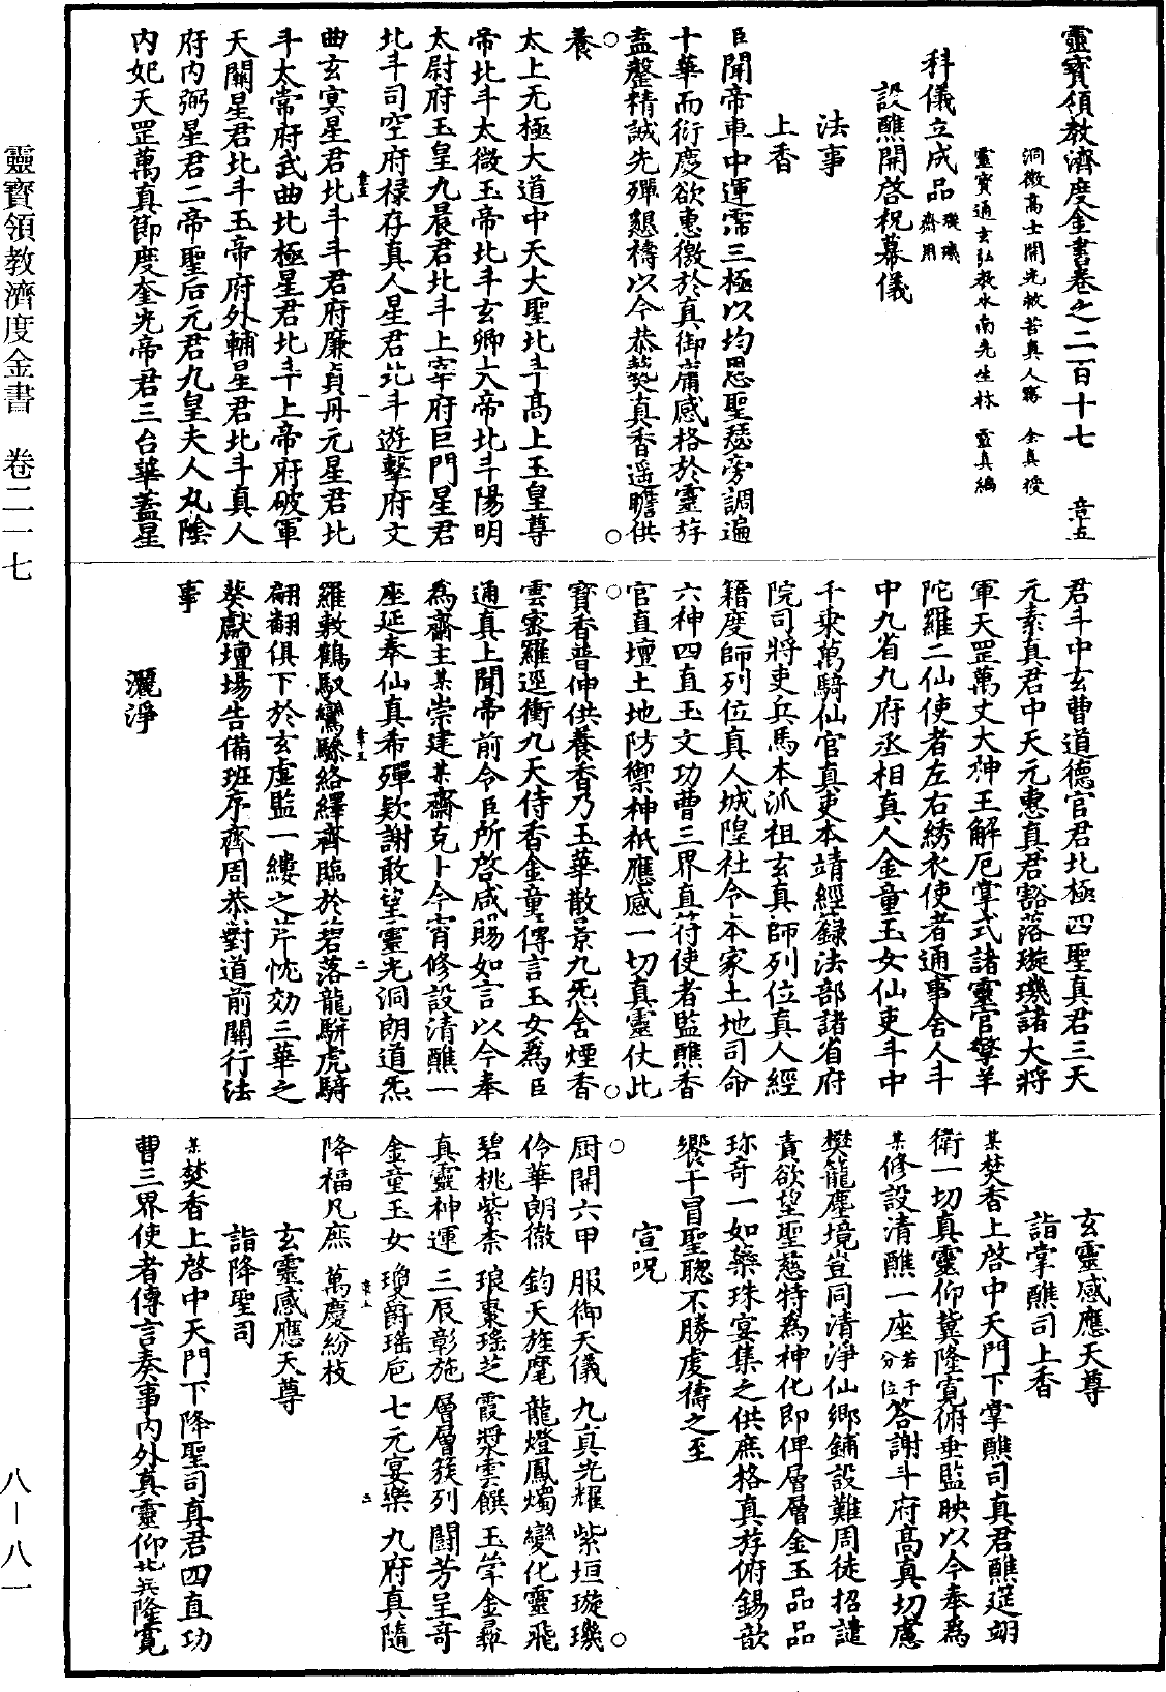 靈寶領教濟度金書卷之二百十七　章五
洞微高士開光救苦真人甯　全真授
靈寶通玄弘教水南先生林　靈真編
科儀立成品璇璣齋用
設醮開啓祝幕儀
法事
上香
臣聞帝車中運霈三極以均恩聖瑟旁調遍
十華而衍慶欲惠徼於真御庸感格於靈斿
盍罄精誠先殫懇禱以今恭爇真香遥瞻供
養
太上无極大道中天大聖北斗高上玉皇尊
帝北斗太微玉帝北斗玄卿大帝北斗陽明
太尉府玉皇九晨君北斗上宰府巨門星君
北斗司空府禄存真人星君北斗遊擊府文
曲玄冥星君北斗斗君府廉貞丹元星君北
斗太常府武曲北極星君北斗上帝府破軍
天關星君北斗玉帝府外輔星君北斗真人
府内弼星君二帝聖后元君九皇夫人九陰
内妃天罡萬真節度奎光帝君三台華蓋星
君斗中玄曹道德官君北極四聖真君三天
元素真君中天元惠真君豁落璇璣諸大將
軍天罡萬丈大神王解厄掌式諸靈官擎羊
陀羅二仙使者左右綉衣使者通事舍人斗
中九省九府丞相真人金童玉女仙吏斗中
千乘萬騎仙官真吏本靖經籙法部諸省府
院司將吏兵馬本派祖玄真師列位真人經
籍度師列位真人城隍社令本家土地司命
六神四直玉文功曹三界直符使者監醮香
官直壇土地防禦神祇應感一切真靈仗此
寶香普伸供養香乃玉華散景九炁舍煙香
雲密羅逕衝九天侍香金童傳言玉女爲臣
通真上聞帝前令臣所啓咸賜如言以今奉
爲齋主某崇建某齋克卜今宵修設清醮一
座延奉仙真希殫欵謝敢望靈光洞朗道炁
羅敷鶴馭鸞驂絡繹齊臨於碧落龍騈虎騎
翩翻俱下於玄虛監一縷之芹忱効三華之
葵獻壇場告備班序齊周恭對道前闡行法
事
灑淨
玄靈感應天尊
詣掌醮司上香
某焚香上啓中天門下掌醮司真君醮筵翊
衛一切真靈仰冀隆寬俯垂監映以今奉爲
某修設清醮一座若干分位答謝斗府高真切慮
樊籠塵境豈同清淨仙鄉鋪設難周徒招譴
責欲望聖慈特爲神化即俾層層金玉品品
珍竒一如蘂珠宴集之供庶格真斿俯錫歆
饗干冒聖聰不勝虔禱之至
宣呪
厨開六甲　服御天儀　九真光耀　紫垣璇璣
伶華朗徹　鈞天旌麾　龍燈鳳燭　變化靈飛
碧桃紫柰　琅棗瑤芝　霞漿雲饌　玉斝金彞
真靈神運　三辰彰施　層層簇列　鬬芳呈竒
金童玉女　瓊爵瑤巵　七元宴樂　九府真隨
降福凡庶　萬慶紛枝
玄靈感應天尊
詣降聖司
某焚香上啓中天門下降聖司真君四直功
曹三界使者傳言奏事内外真靈仰冀隆寬
靈寶領教濟度金書　卷二一七
八—八一